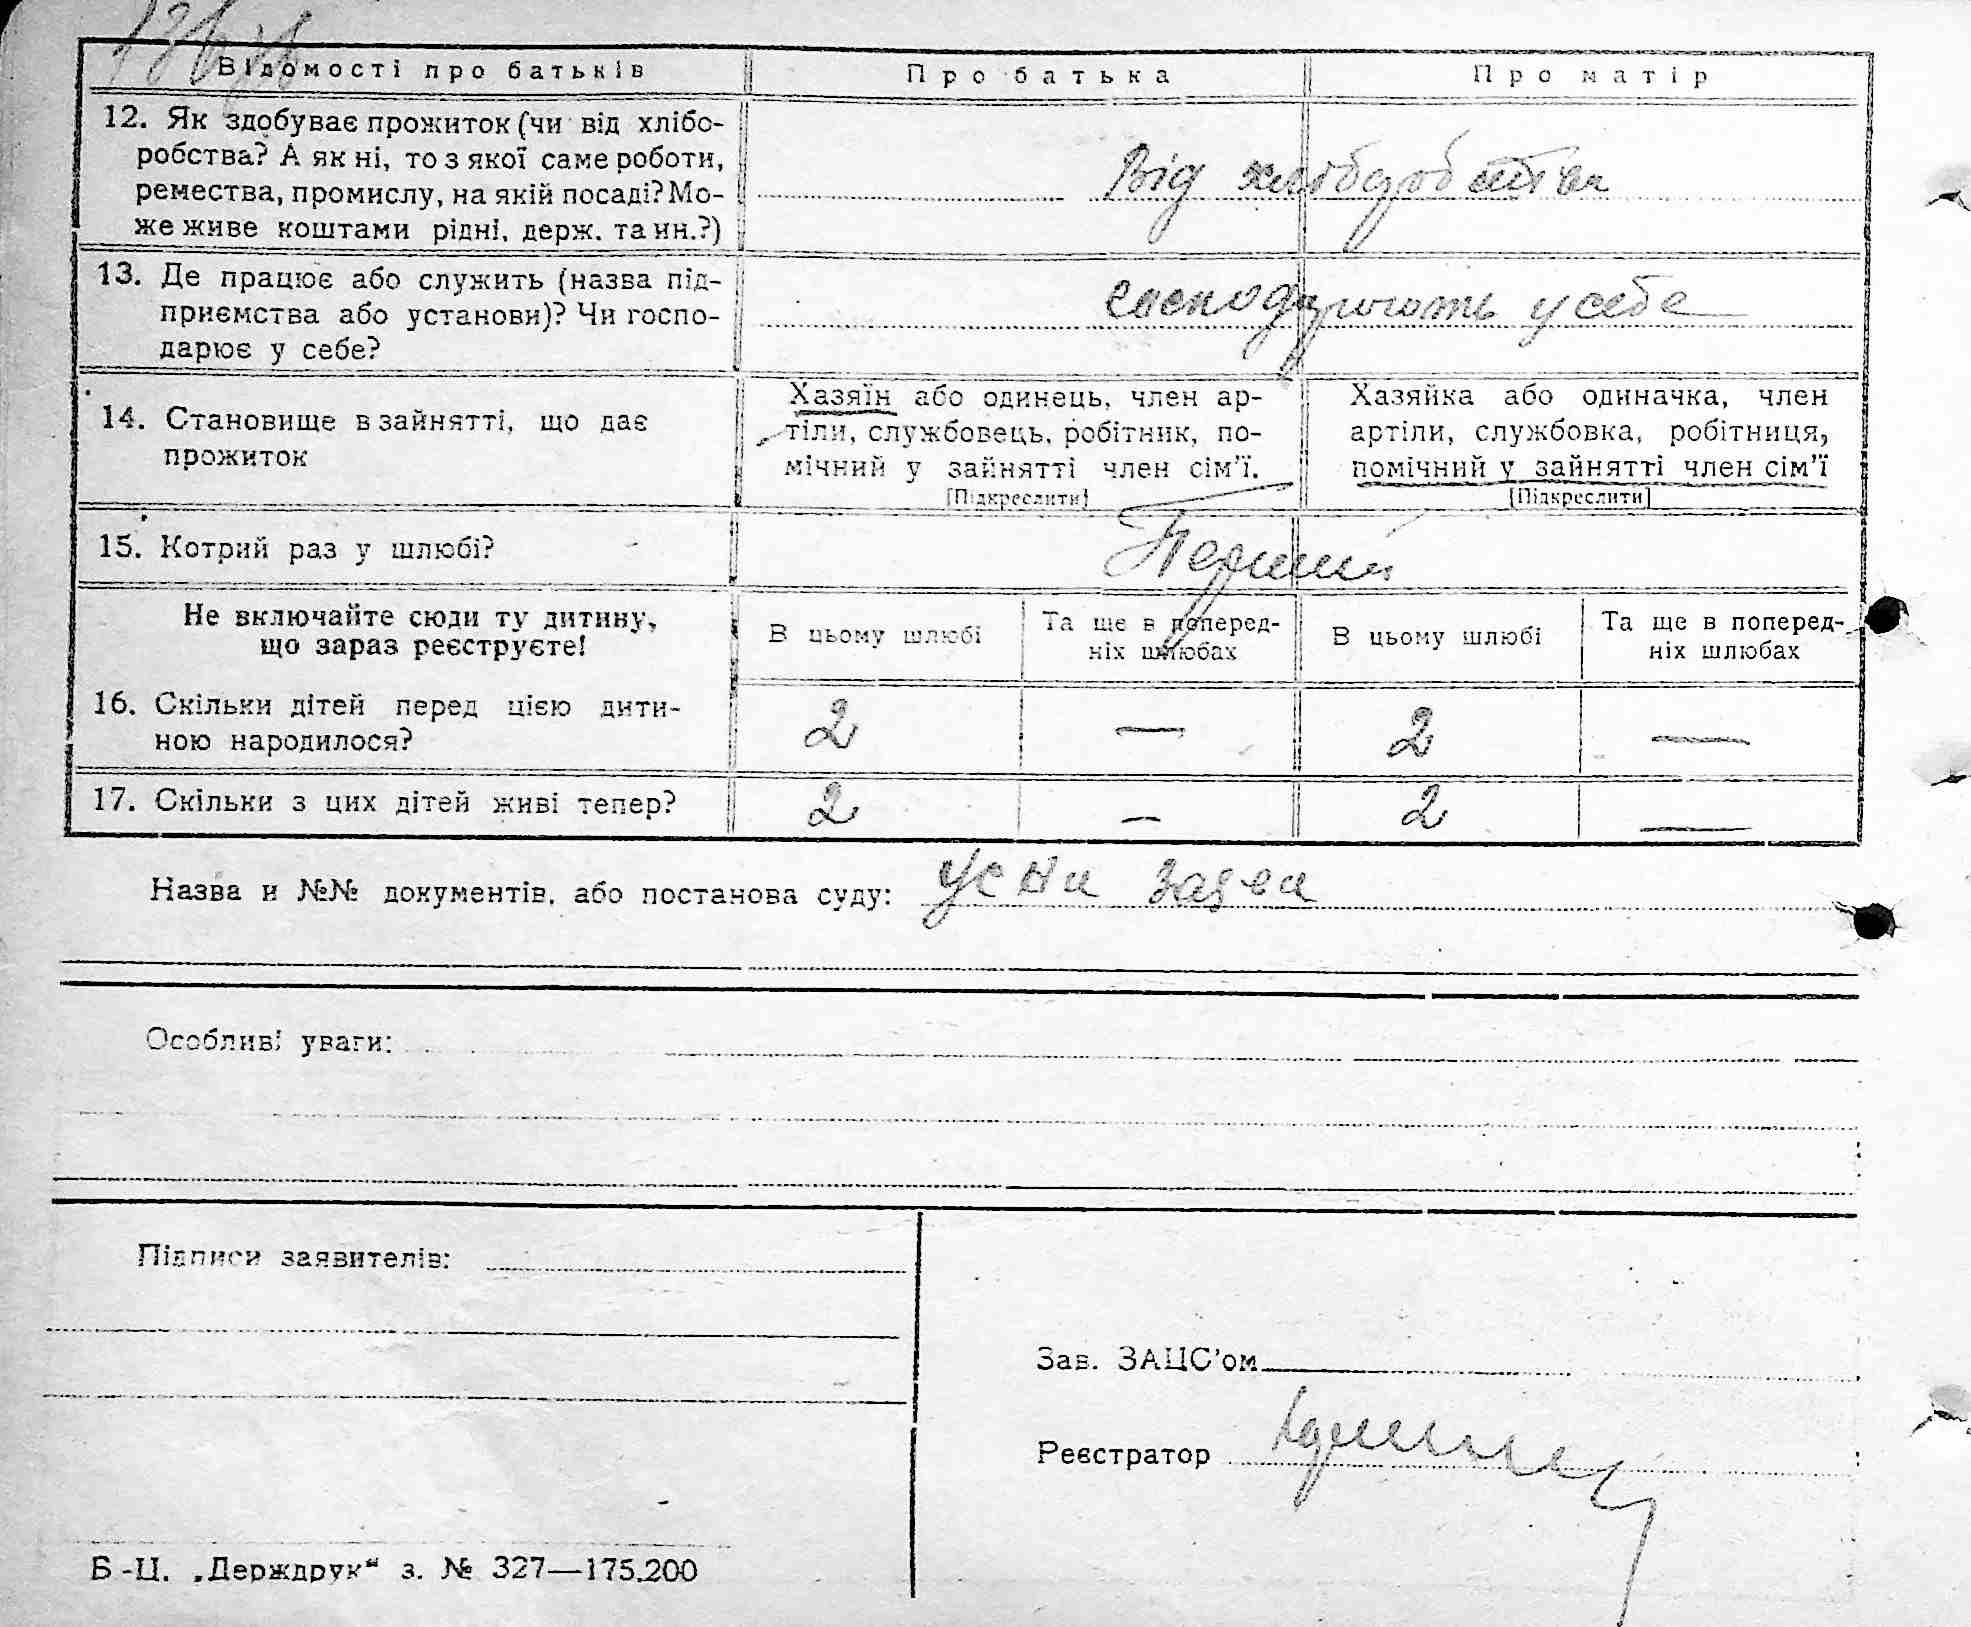 Відомості про батьків Про батька Про матір
12. Як здобуває прожиток (чи від хлібо-
робства? А як ні, то з якої саме роботи,
ремества, промислу, на якій посаді? Мо-
же живе коштами рідні, держ. та ин.?)
Від хліборобства
13. Де працює або служить (назва під-
приємства або установи)? Чи госпо-
дарює у себе?
господарюють у себе
14. Становище в зайнятті, що дає
прожиток
Хазяїн або одинець, член ар-
тіли, службовець, робітник, по-
мічний у зайнятті член сім'ї.
[Підкреслити]
Хазяйка або одиначка, член
артіли, службовка, робітниця,
помічний у зайнятті член сім'ї
[Підкреслити]
15. Котрий раз у шлюбі?
Перший
Не включайте сюди ту дитину,
що зараз реєструєте!
В цьому шлюбі
Та ще в поперед-
ніх шлюбах
В цьому шлюбі
Та ще в поперед-
ніх шлюбах
16. Скільки дітей перед цією дити-
ною народилося?
2 — 2 —
17. Скільки з цих дітей живі тепер? 2 — 2 —
Назва и №№ документів, або постанова суду: усна заява
Особливі уваги:
Підписи заявителів:
Зав. ЗАЦС'ом
Реєстратор
Б-Ц. „Держдрук“ з. № 327—175.200